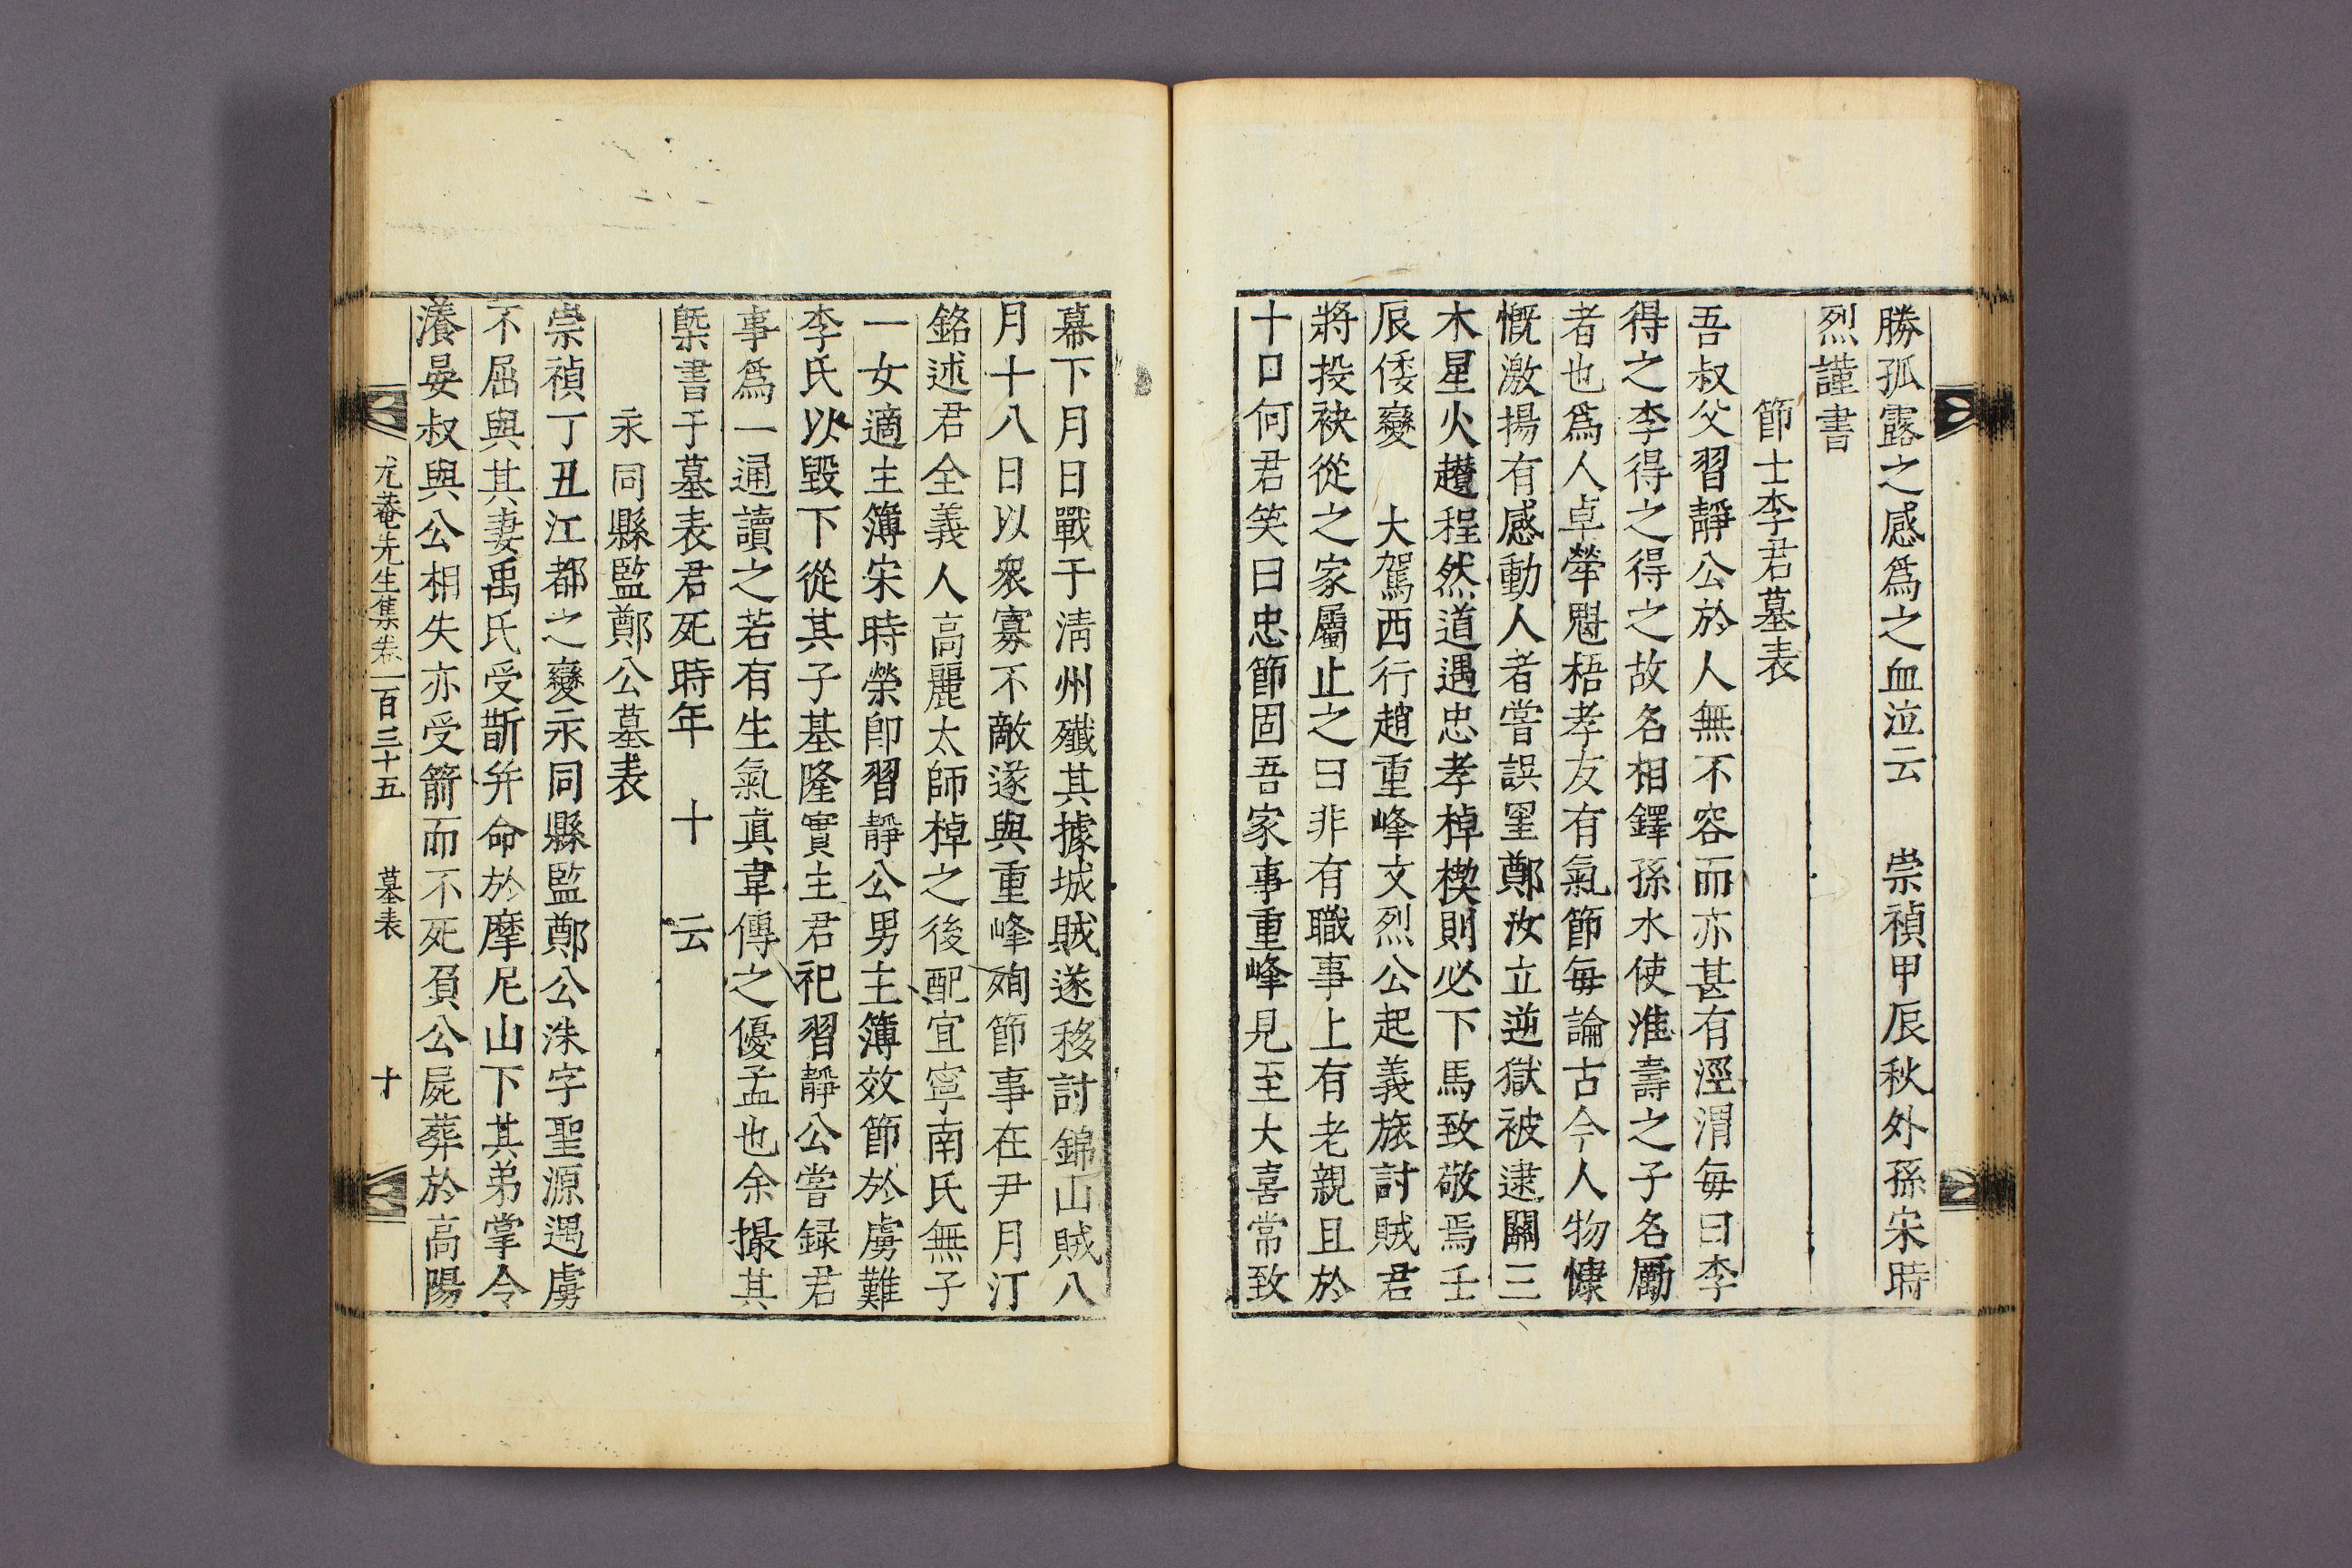 勝孤露之感爲之血泣云　崇禎甲辰秋外孫宋時
烈謹書
節士李君墓表
吾叔父習靜公於人無不容而亦甚有涇渭每曰李
得之李得之得之故名相鐸孫水使淮壽之子名勵
者也爲人卓犖魁梧孝友有氣節每論古今人物慷
慨激揚有感動人者嘗誤罣鄭汝立逆獄被逮關三
木星火趲程然道遇忠孝棹楔則必下馬致敬焉壬
辰倭變　大駕西行趙重峰文烈公起義旅討賊君
將投袂從之家屬止之曰非有職事上有老親且於
十口何君笑曰忠節固吾家事重峰見至大喜常致
幕下月日戰于淸州殲其據城賊遂移討錦山賊八
月十八日以衆寡不敵遂與重峰殉節事在尹月汀
銘述君全義人高麗太師棹之後配宜寧南氏無子
一女適主簿宋時榮卽習靜公男主簿效節於虜難
李氏以毀下從其子基隆實主君祀習靜公嘗録君
事爲一通讀之若有生氣眞韋傳之優孟也余撮其
槩書于墓表君死時年　十　云
永同縣監鄭公墓表
崇禎丁丑江都之變永同縣監鄭公洙字聖源遇虜
不屈與其妻禹氏受斮幷命於摩尼山下其弟掌令
瀁晏叔與公相失亦受箭而不死負公屍葬於高陽
尤菴先生集卷一百三十五　墓表　十